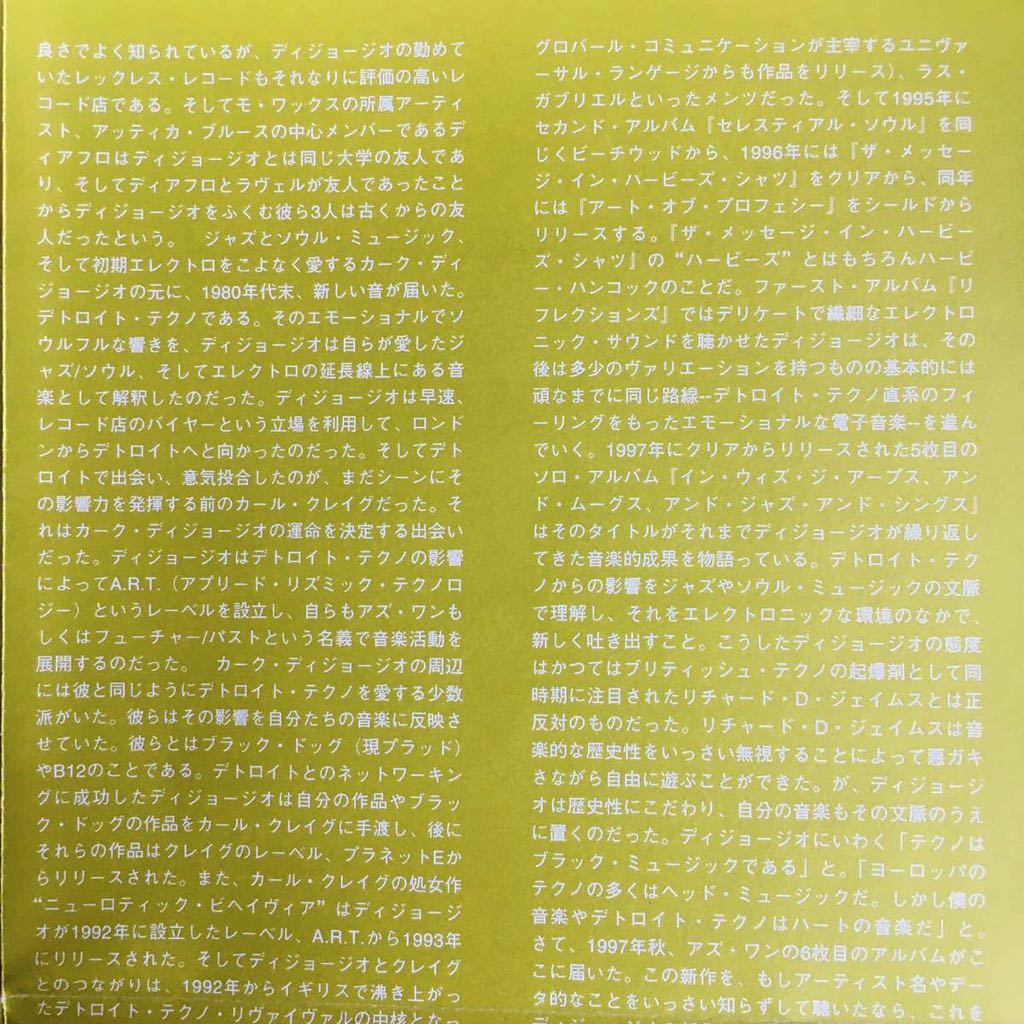 良さでよく知られているが、ディジョージオの勤めて
いたレックレス・レコードもそれなりに評価の高いレ
コード店である。そしてモ・ワックスの所属アーティ
スト、アッティカ・ブルースの中心メンバーであるデ
ィアフロはディジョージオとは同じ大学の友人であ
り、そしてディアフロとラヴェルが友人であったこと
からディジョージオをふくむ彼ら3人は古くからの友
人だったという。　ジャズとソウル・ミュージック、
そして初期エレクトロをこよなく愛するカーク・ディ
ジョージオの元に、1980年代末、新しい音が届いた。
デトロイト・テクノである。そのエモーショナルでソ
ウルフルな響きを、ディジョージオは自らが愛したジ
ャズ/ソウル、そしてエレクトロの延長線上にある音
楽として解釈したのだった。ディジョージオは早速、
レコード店のバイヤーという立場を利用して、ロンド
ンからデトロイトへと向かったのだった。そしてデト
ロイトで出会い、意気投合したのが、まだシーンにそ
の影響力を発揮する前のカール・クレイグだった。そ
れはカーク・ディジョージオの運命を決定する出会い
だった。ディジョージオはデトロイト・テクノの影響
によってA.R.T.（アプリード・リズミック・テクノロ
ジー）というレーベルを設立し、自らもアズ・ワンも
しくはフューチャー/パストという名義で音楽活動を
展開するのだった。　カーク・ディジョージオの周辺
には彼と同じようにデトロイト・テクノを愛する少数
派がいた。彼らはその影響を自分たちの音楽に反映さ
せていた。彼らとはブラック・ドッグ（現プラッド）
やB12のことである。デトロイトとのネットワーキン
グに成功したディジョージオは自分の作品やブラッ
ク・ドッグの作品をカール・クレイグに手渡し、後に
それらの作品はクレイグのレーベル、プラネットEか
らリリースされた。また、カール・クレイグの処女作
“ニューロティック・ビヘイヴィア”はディジョージ
オが1992年に設立したレーベル、A.R.T.から1993年
にリリースされた。そしてディジョージオとクレイグ
とのつながりは、1992年からイギリスで沸き上がっ
たデトロイト・テクノ・リヴァイヴァルの中核となっ
グロバール・コミュニケーションが主宰するユニヴァ
ーサル・ランゲージからも作品をリリース）、ラス・
ガブリエルといったメンツだった。そして1995年に
セカンド・アルバム『セレスティアル・ソウル』を同
じくビーチウッドから、1996年には『ザ・メッセー
ジ・イン・ハービーズ・シャツ』をクリアから、同年
には『アート・オブ・プロフェシー』をシールドから
リリースする。『ザ・メッセージ・イン・ハービー
ズ・シャツ』の“ハービーズ”とはもちろんハービ
ー・ハンコックのことだ。ファースト・アルバム『リ
フレクションズ』ではデリケートで繊細なエレクトロ
ニック・サウンドを聴かせたディジョージオは、その
後は多少のヴァリエーションを持つものの基本的には
頑なまでに同じ路線--デトロイト・テクノ直系のフィ
ーリングをもったエモーショナルな電子音楽--を進ん
でいく。1997年にクリアからリリースされた5枚目の
ソロ・アルバム『イン・ウィズ・ジ・アープス、アン
ド・ムーグス、アンド・ジャズ・アンド・シングス』
はそのタイトルがそれまでディジョージオが繰り返し
てきた音楽的成果を物語っている。デトロイト・テク
ノからの影響をジャズやソウル・ミュージックの文脈
で理解し、それをエレクトロニックな環境のなかで、
新しく吐き出すこと。こうしたディジョージオの態度
はかつてはブリティッシュ・テクノの起爆剤として同
時期に注目されたリチャード・D・ジェイムスとは正
反対のものだった。リチャード・D・ジェイムスは音
楽的な歴史性をいっさい無視することによって悪ガキ
さながら自由に遊ぶことができた。が、ディジョージ
オは歴史性にこだわり、自分の音楽もその文脈のうえ
に置くのだった。ディジョージオにいわく「テクノは
ブラック・ミュージックである」と。「ヨーロッパの
テクノの多くはヘッド・ミュージックだ。しかし僕の
音楽やデトロイト・テクノはハートの音楽だ」と。
さて、1997年秋、アズ・ワンの6枚目のアルバムがこ
こに届いた。この新作を、もしアーティスト名やデー
タ的なことをいっさい知らずして聴いたなら、これを